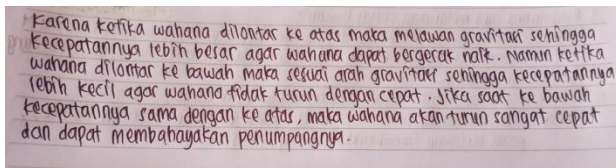 Karena ketika wahana dilontar ke atas maka melawan gravitasi sehingga
kecepatannya lebih besar agar wahana dapat bergerak naik. Namun ketika
wahana dilontar ke bawah maka sesuai arah gravitasi sehingga kecepatannya
lebih kecil agar wahana tidak turun dengan cepat. Jika saat ke bawah
kecepatannya sama dengan ke atas, maka wahana akan turun sangat cepat
dan dapat membahayakan penumpangnya.